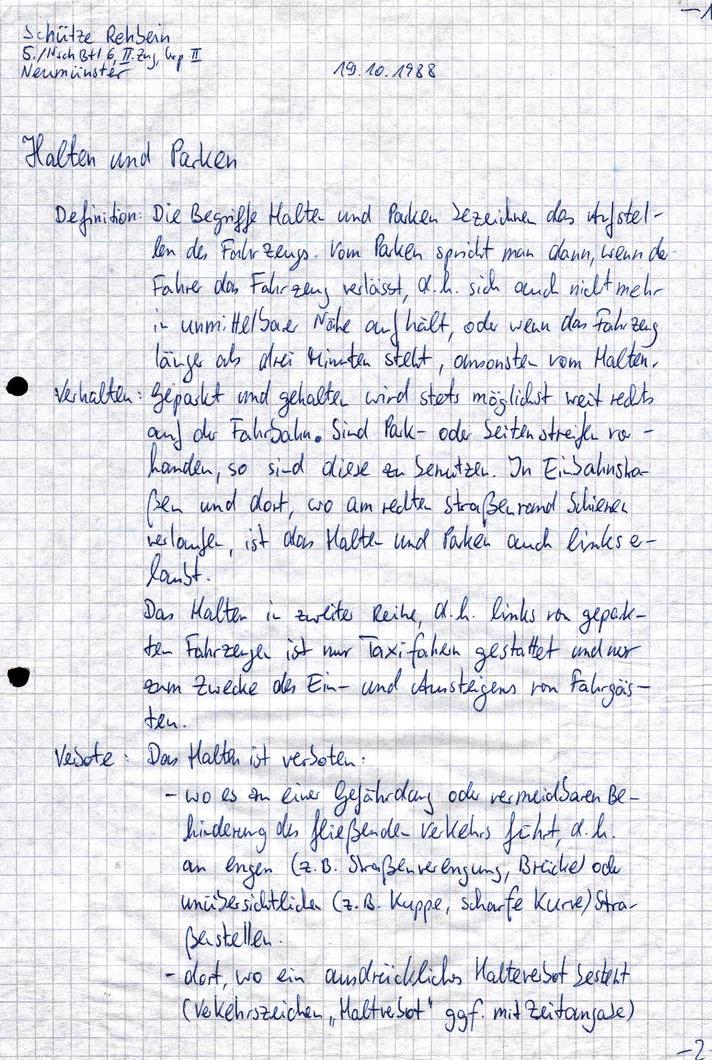 -1
Schütze Rehbein
5./NschBtl 6, II. Zug, Grp II
Neumünster
19.10.1988
Halten und Parken
Definition: Die Begriffe Halten und Parken bezeichnen das Aufstel-
len des Fahrzeugs. Vom Parken spricht man dann, wenn der
Fahrer das Fahrzeug verlässt, d.h. sich auch nicht mehr
in unmittelbarer Nähe aufhält, oder wenn das Fahrzeug
länger als drei Minuten steht, ansonsten vom Halten.
Verhalten: Geparkt und gehalten wird stets möglichst weit rechts
auf der Fahrbahn. Sind Park- oder Seitenstreifen vor-
handen, so sind diese zu benutzen. In Einbahnstra-
ßen und dort, wo am rechten Straßenrand Schienen
verlaufen, ist das Halten und Parken auch links er-
laubt.
Das Halten in zweiter Reihe, d.h. links von gepark-
ten Fahrzeugen ist nur Taxifahrern gestattet und nur
zum Zwecke des Ein- und Aussteigens von Fahrgäs-
ten.
Verbote: Das Halten ist verboten:
- wo es zu einer Gefährdung oder vermeidbaren Be-
hinderung des fließenden Verkehrs führt, d.h.
an engen (z.B. Straßenverengung, Brücke) oder
unübersichtlichen (z.B. Kuppe, scharfe Kurve) Stra-
ßenstellen.
- dort, wo ein ausdrückliches Halteverbot besteht
(Verkehrszeichen „Haltverbot" ggf. mit Zeitangabe)
-2